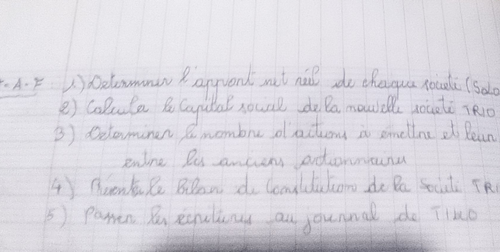 T.A.F 1) Determiner l'apport net réel de chaque société (Solo
2) Calculer le Capital social de la nouvelle société TRIO
3) Determiner le nombre d'actions à emettre et leur
entre les anciens actionnaires
4) le Bilan de Constitution de la Société TRI
5) Passer les écritures au journal de